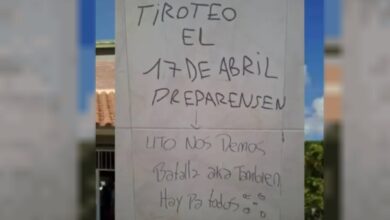 TiROTEO
EL
17 DE ABRIL
PREPARENSEN
UTO NOS Demos
Batalla aka Tambien
Hay Pa todos